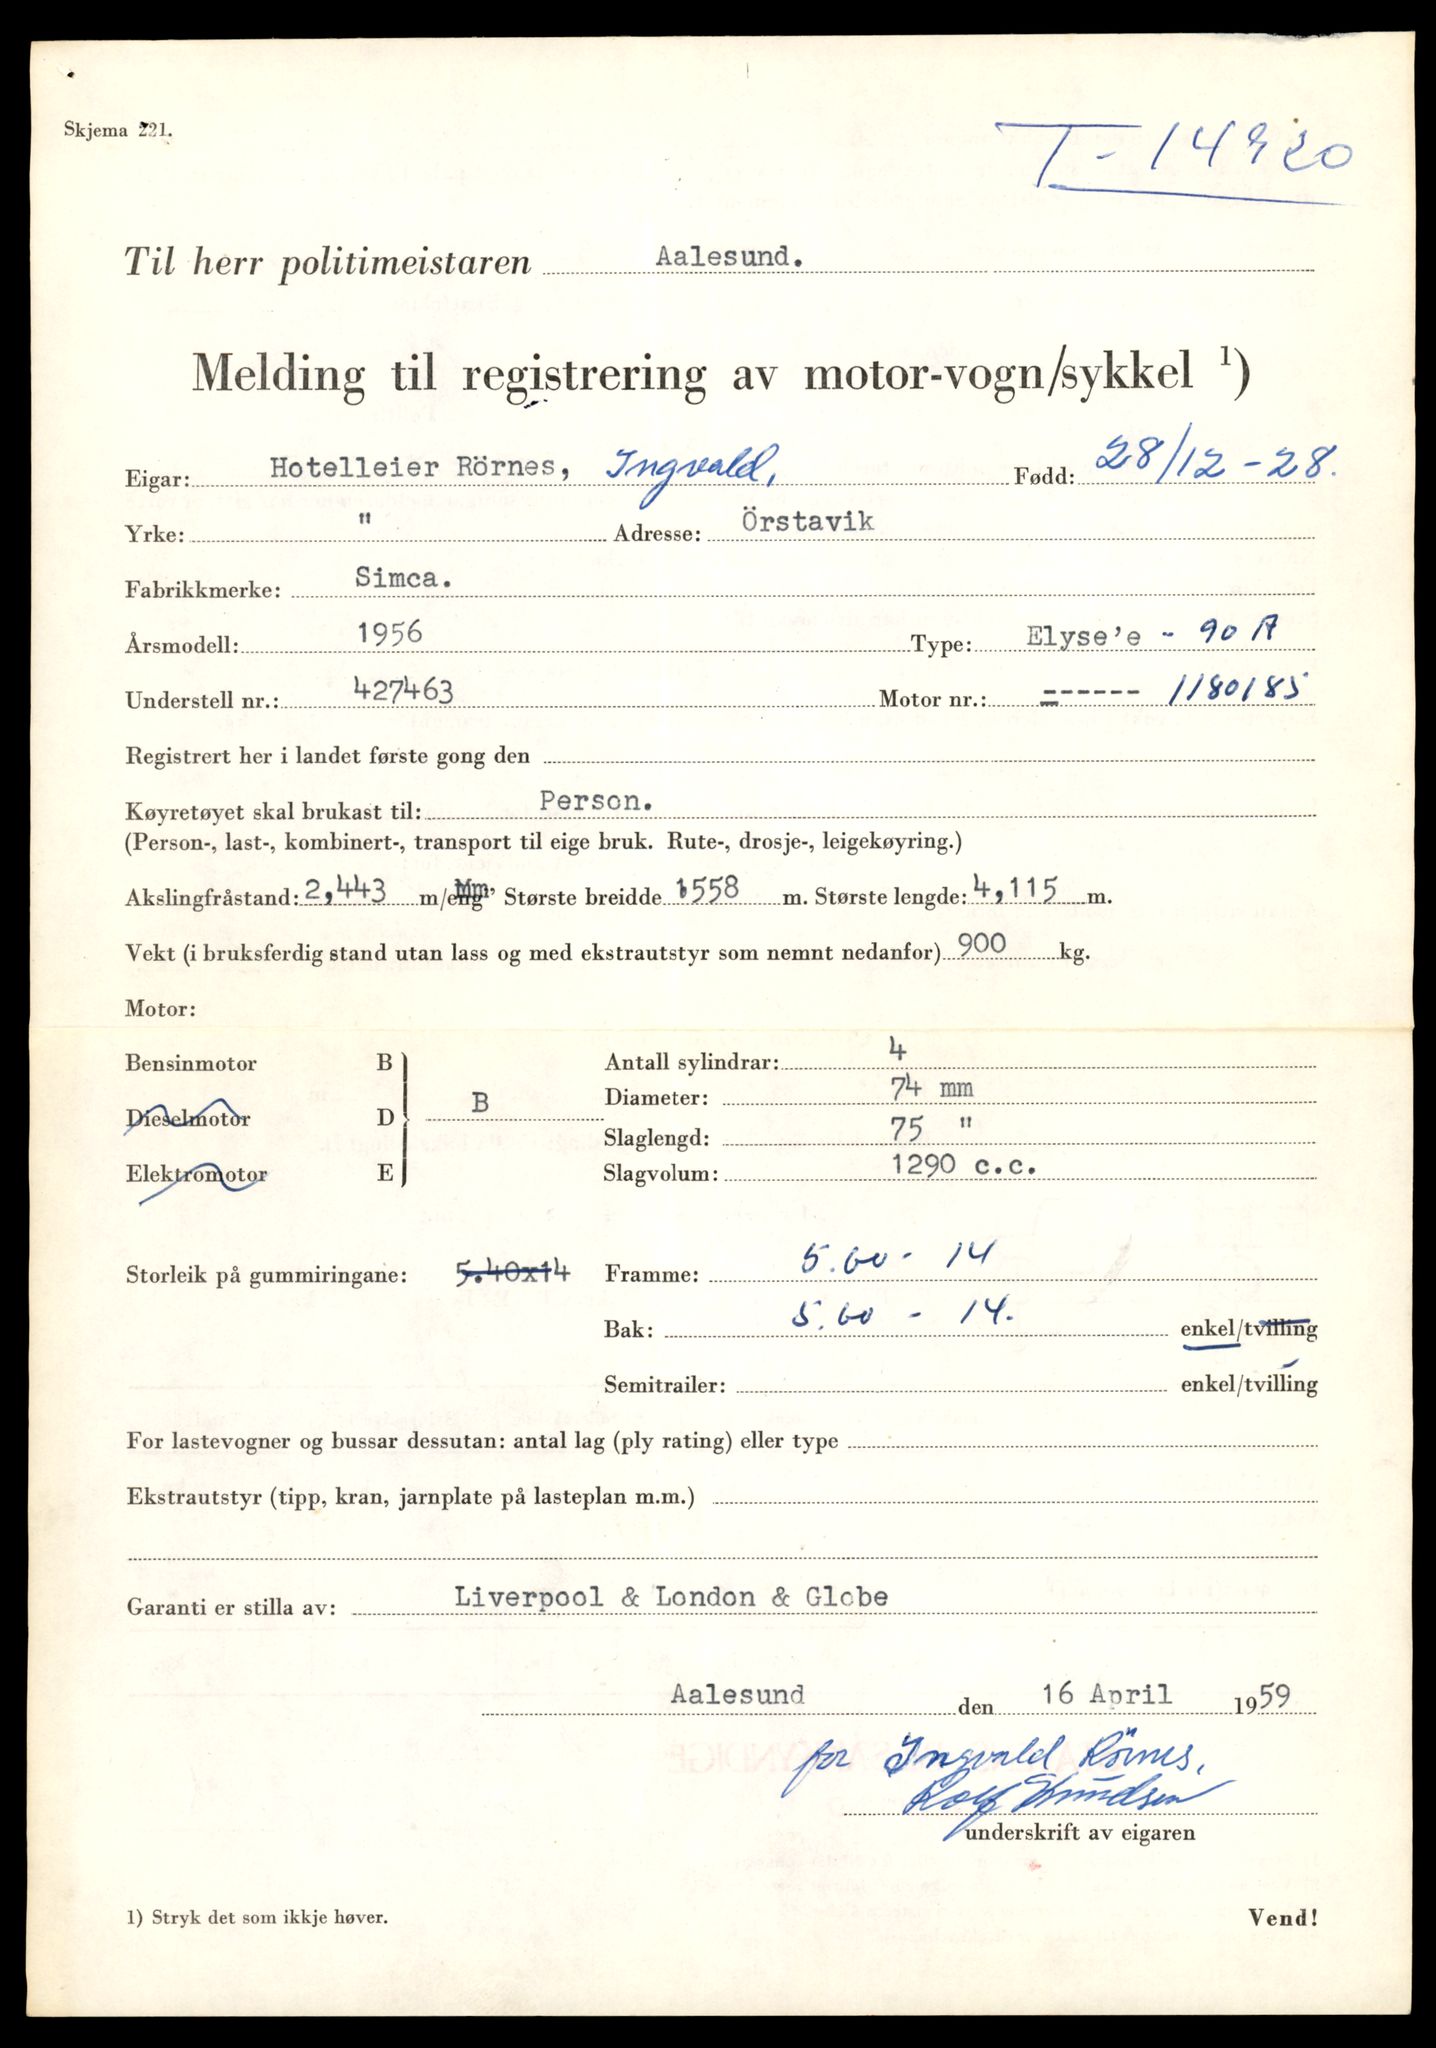 Skjema 221.
T-14920
Til herr politimeistaren Aalesund.
Melding til registrering av motor-vogn/sykkel 1)
Eigar: Hotelleier Rörnes, Ingvald, Født: 28/12-28.
Yrke: " Adresse: Örstavik
Fabrikkmerke: Simca.
Årsmodell: 1956 Type: Elyse'e - 90 A
Understell nr.: 427463 Motor nr.: ------ 1180185
Registrert her i landet første gong den
Køyretøyet skal brukast til: Person.
(Person-, last-, kombinert-, transport til eige bruk. Rute-, drosje-, leigekøyring.)
Akslingfråstand: 2,443 m/eng' Største breidde 1558 m. Største lengde: 4,115 m.
Vekt (i bruksferdig stand utan lass og med ekstrautstyr som nemnt nedanfor) 900 kg.
Motor:
Bensinmotor B Antall sylindrar: 4
Diameter: 74 mm
Dieselmotor D B
Slaglengd: 75 "
Elektromotor E Slagvolum: 1290 c.c.
Storleik på gummiringane: 5.40x14 Framme: 5.60 - 14
Bak: 5.60 - 14. enkel/tvilling
Semitrailer: enkel/tvilling
For lastevogner og bussar dessutan: antal lag (ply rating) eller type
Ekstrautstyr (tipp, kran, jarnplate på lasteplan m.m.)
Garanti er stilla av: Liverpool & London & Globe
Aalesund den 16 April 1959
for Ingvald Rörnes,
Rolf Knudsen
underskrift av eigaren
1) Stryk det som ikkje høver. Vend!